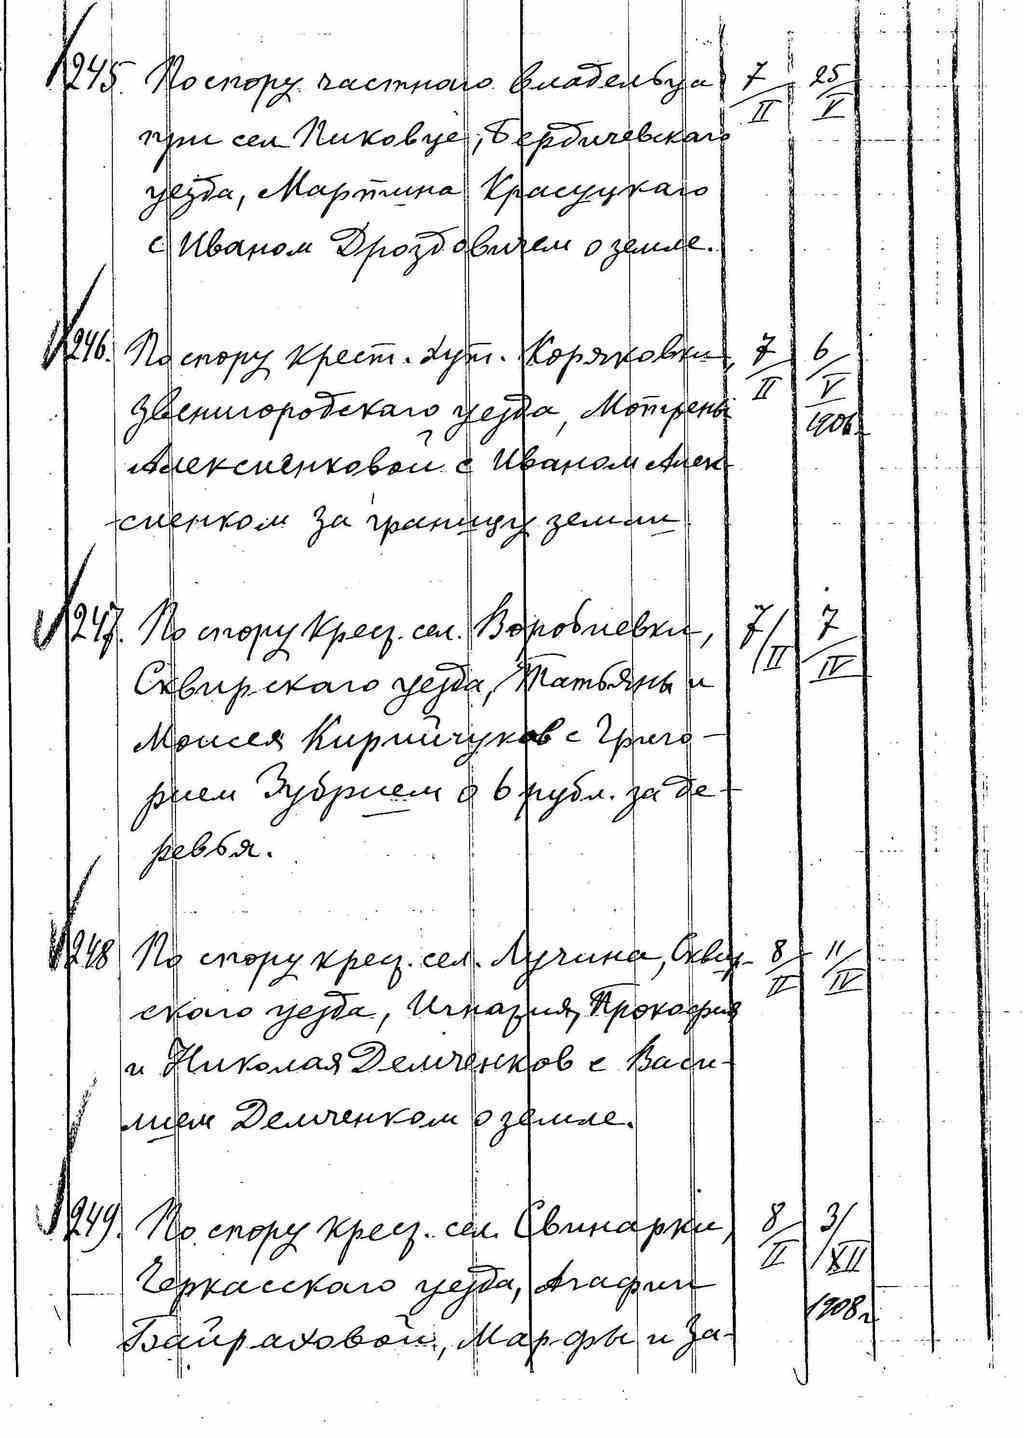 245. По спору частнаго владельца 7/II 25/V
при сел. Пиковце, Бердичевскаго
уезда, Мартина Красуцкаго
с Иваном Дроздовичем о земле.
246. По спору крест. хут. Коряковки, 7/II 6/V 1906 г.
Звенигородскаго уезда, Мотрены
Алексиенковой с Иваном Алек-
сиенком за границу земли
247. По спору крест. сел. Воробиевки, 7/II 7/IV
Сквирскаго уезда, Татьяны и
Моисея Кирийчуков с Григо-
рием Зубрием о 6 рубл. за де-
ревья.
248 По спору крест. сел. Лучина, Сквир- 8/II 11/IV
скаго уезда, Игназия, Прокофия
и Николая Демченков с Васи-
лием Демченком о земле.
249. По спору крест. сел. Свинарки, 8/II 3/XII
Черкасскаго уезда, Агафии 1908 г.
Байраховой, Марфы и За-